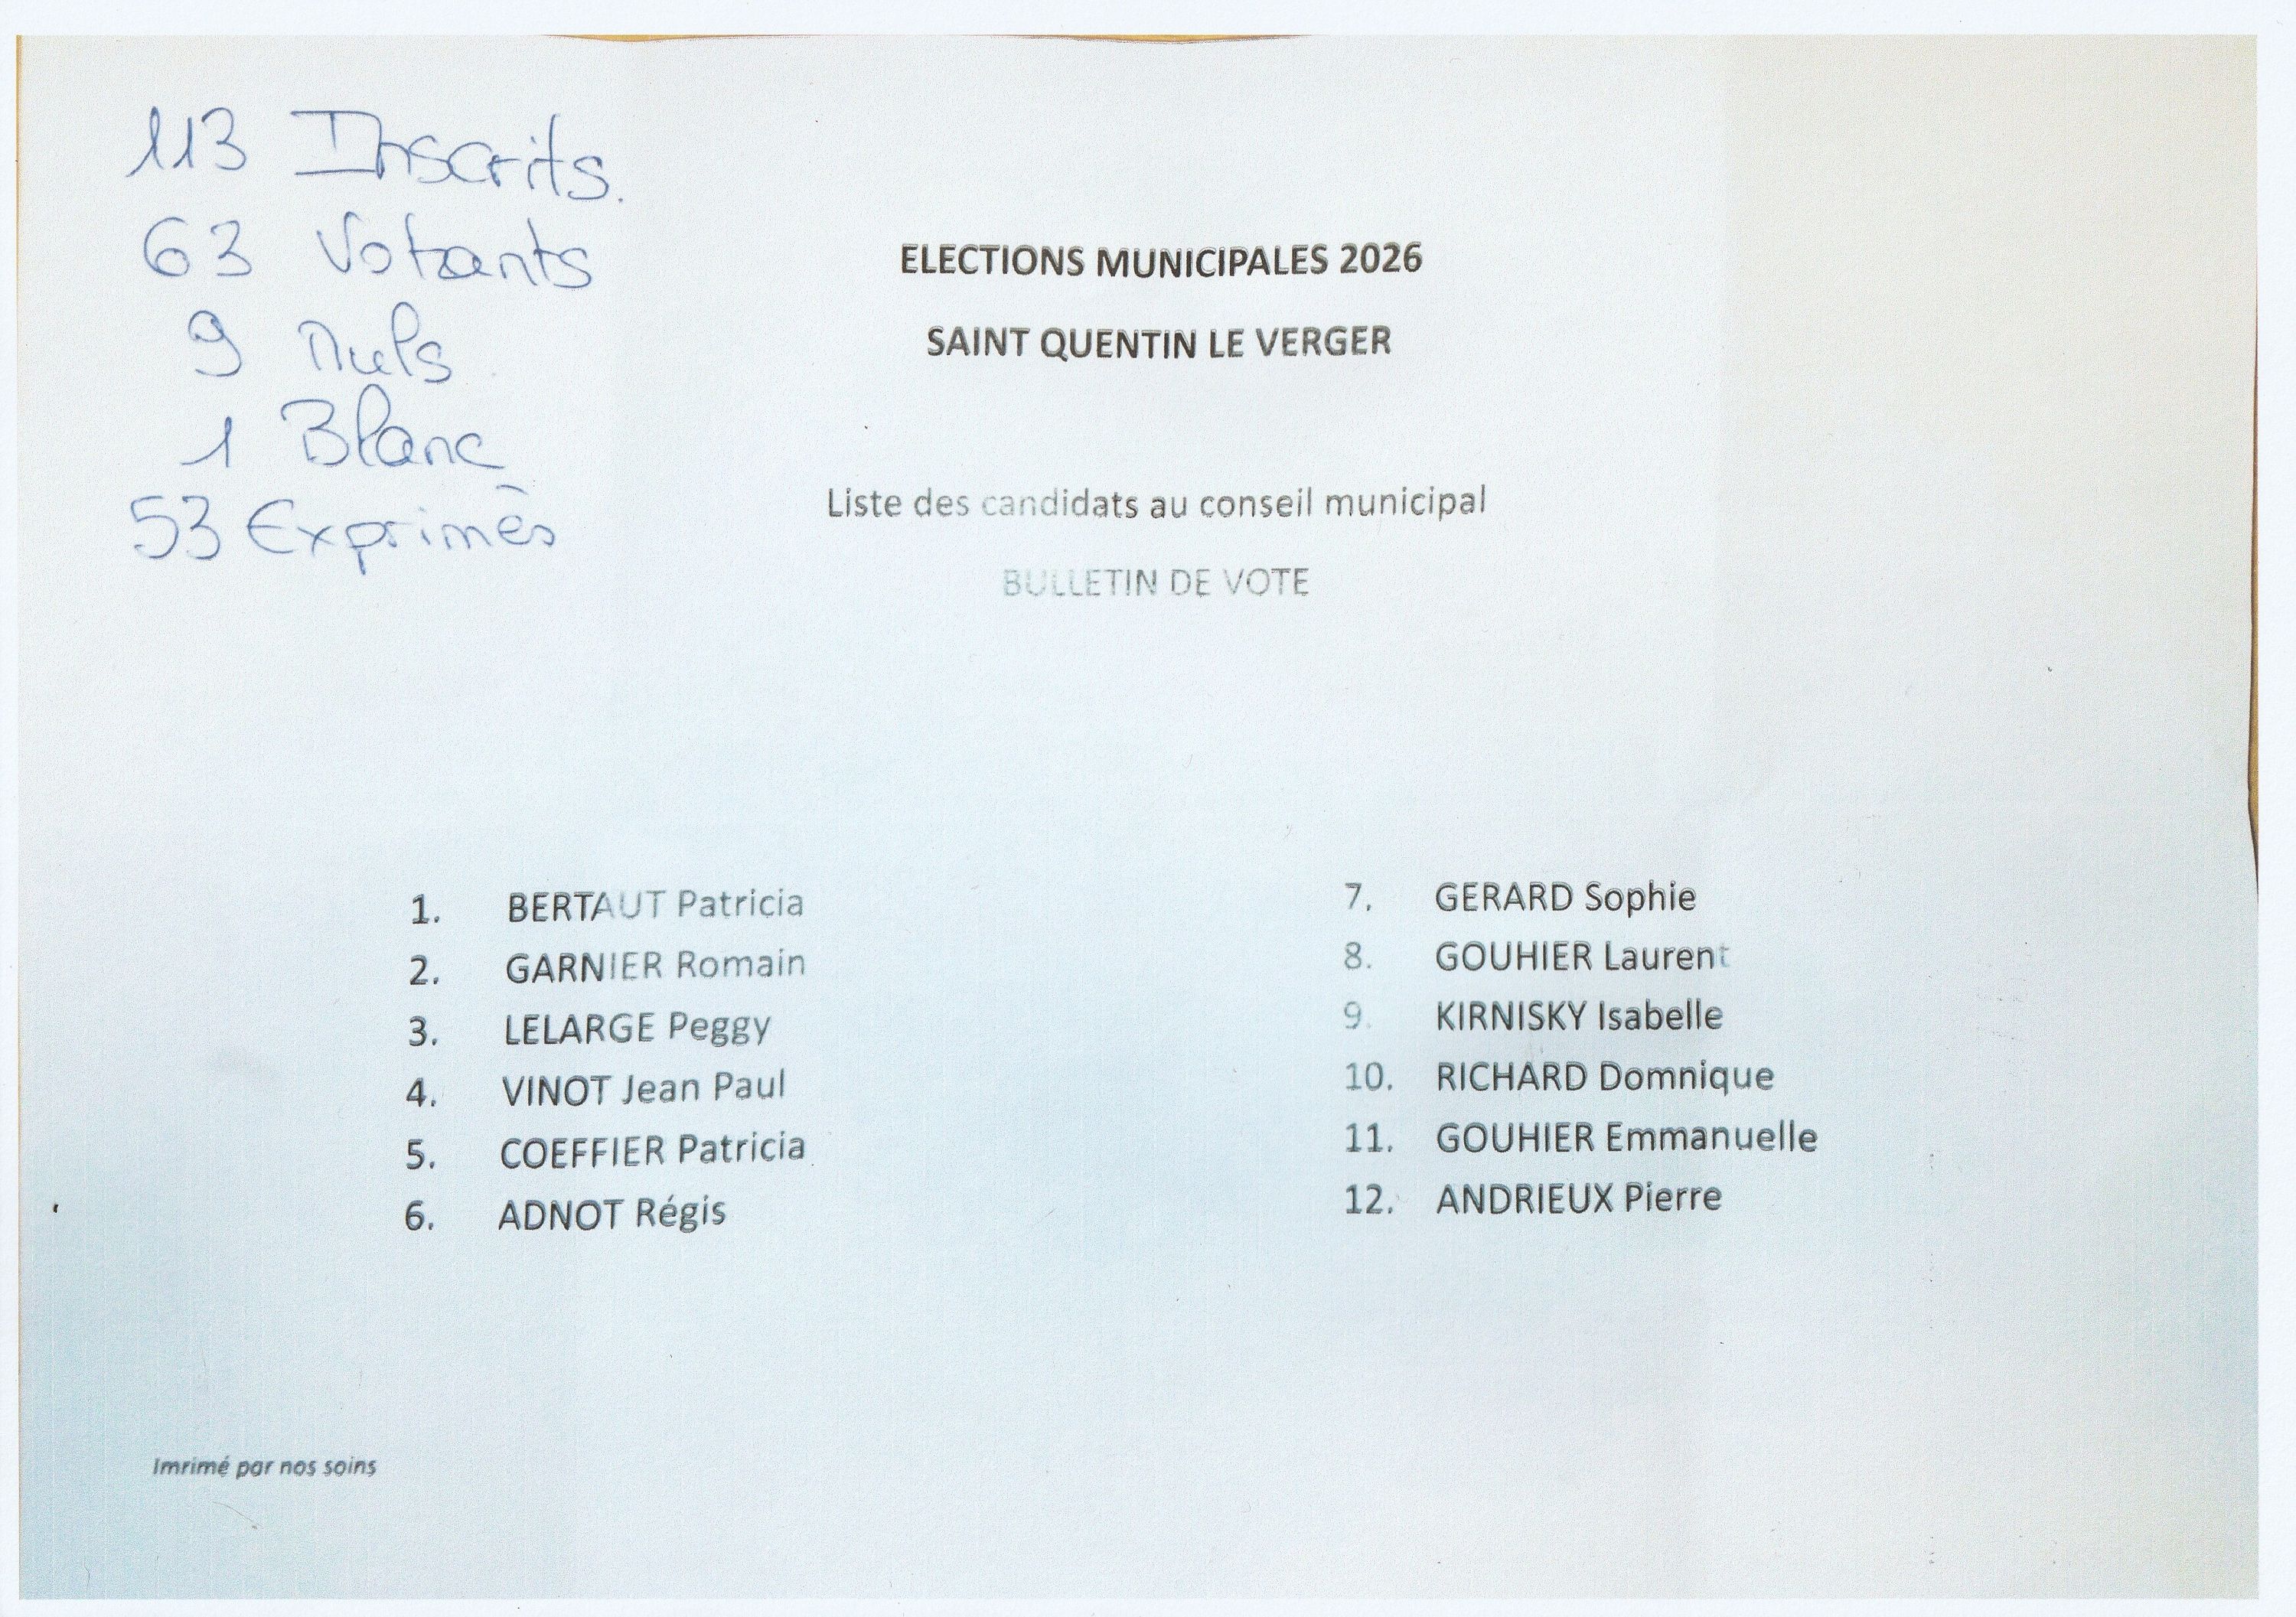 113 Inscrits.
63 Votants
9 Nuls
1 Blanc
53 Exprimés
ELECTIONS MUNICIPALES 2026
SAINT QUENTIN LE VERGER
Liste des candidats au conseil municipal
BULLETIN DE VOTE
1. BERTAUT Patricia
2. GARNIER Romain
3. LELARGE Peggy
4. VINOT Jean Paul
5. COEFFIER Patricia
6. ADNOT Régis
7. GERARD Sophie
8. GOUHIER Laurent
9. KIRNISKY Isabelle
10. RICHARD Domnique
11. GOUHIER Emmanuelle
12. ANDRIEUX Pierre
Imrimé par nos soins